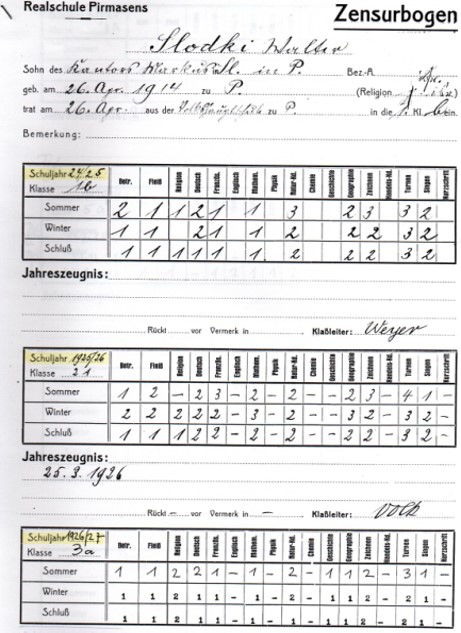 Realschule Pirmasens
Zensurbogen
Slodki Walter
Sohn des Kantors Markus Sl. in P. Bez.-A.
geb. am 26. Apr. 1914 zu P. (Religion
trat am 26. Apr. aus der zu P. in die 1. Kl. b ein.
Bemerkung:
Schuljahr 24/25
Klasse 1b Betr. Fleiß Religion Deutsch Französ. Englisch Mathem. Physik Natur-Kd. Chemie Geschichte Geographie Zeichnen Handels-Kd. Turnen Singen Kurzschrift
Sommer 2 1 1 2 1 1 3 2 3 3 2
Winter 1 1 2 1 1 2 2 2 3 2
Schluß 1 1 1 1 1 1 2 2 2 3 2
Jahreszeugnis:
Rückt vor Vermerk in Klaßleiter: Weyer
Schuljahr 1925/26
Klasse 21 Betr. Fleiß Religion Deutsch Französ. Englisch Mathem. Physik Natur-Kd. Chemie Geschichte Geographie Zeichnen Handels-Kd. Turnen Singen Kurzschrift
Sommer 1 2 - 2 3 - 2 - 2 - - 2 3 - 4 1 -
Winter 2 2 2 2 2 - 3 - 2 - - 3 2 - 3 2 -
Schluß 1 1 1 2 2 - 2 - 2 - - 2 2 - 3 2 -
Jahreszeugnis:
25. 3. 1926
Rückt - vor Vermerk in - Klaßleiter: Volk
Schuljahr 1926/27
Klasse 3a Betr. Fleiß Religion Deutsch Französ. Englisch Mathem. Physik Natur-Kd. Chemie Geschichte Geographie Zeichnen Handels-Kd. Turnen Singen Kurzschrift
Sommer 1 1 2 2 1 - 1 - 2 - 1 1 2 - 3 1 -
Winter 1 1 2 1 1 - 1 - 2 - 1 1 2 - 2 1 -
Schluß 1 1 2 1 1 - 1 - 1 - 1 1 2 - 2 1 -